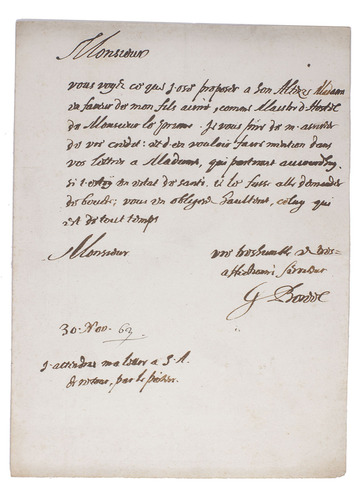 Monsieur
vous voyez ce que j'ose proposer a Son Altesse Madame
en faveur de mon fils aisné, comme Maistre d'Hostel
de Monsieur le Prince. Je vous prie de m'assister
de vre credit: et d'en vouloir faire mention dans
vos lettres a Madame, qui partiront aujourdhuy.
si j'estoy en estat de santé, je le fusse allé demander
de bouche; vous en obligerez celuy qui
est de tout temps
Monsieur
vre treshumble et tres-
affectionné serviteur
30. Nov. 63
J'attendray ma lettre a S. A.
de retour, par le